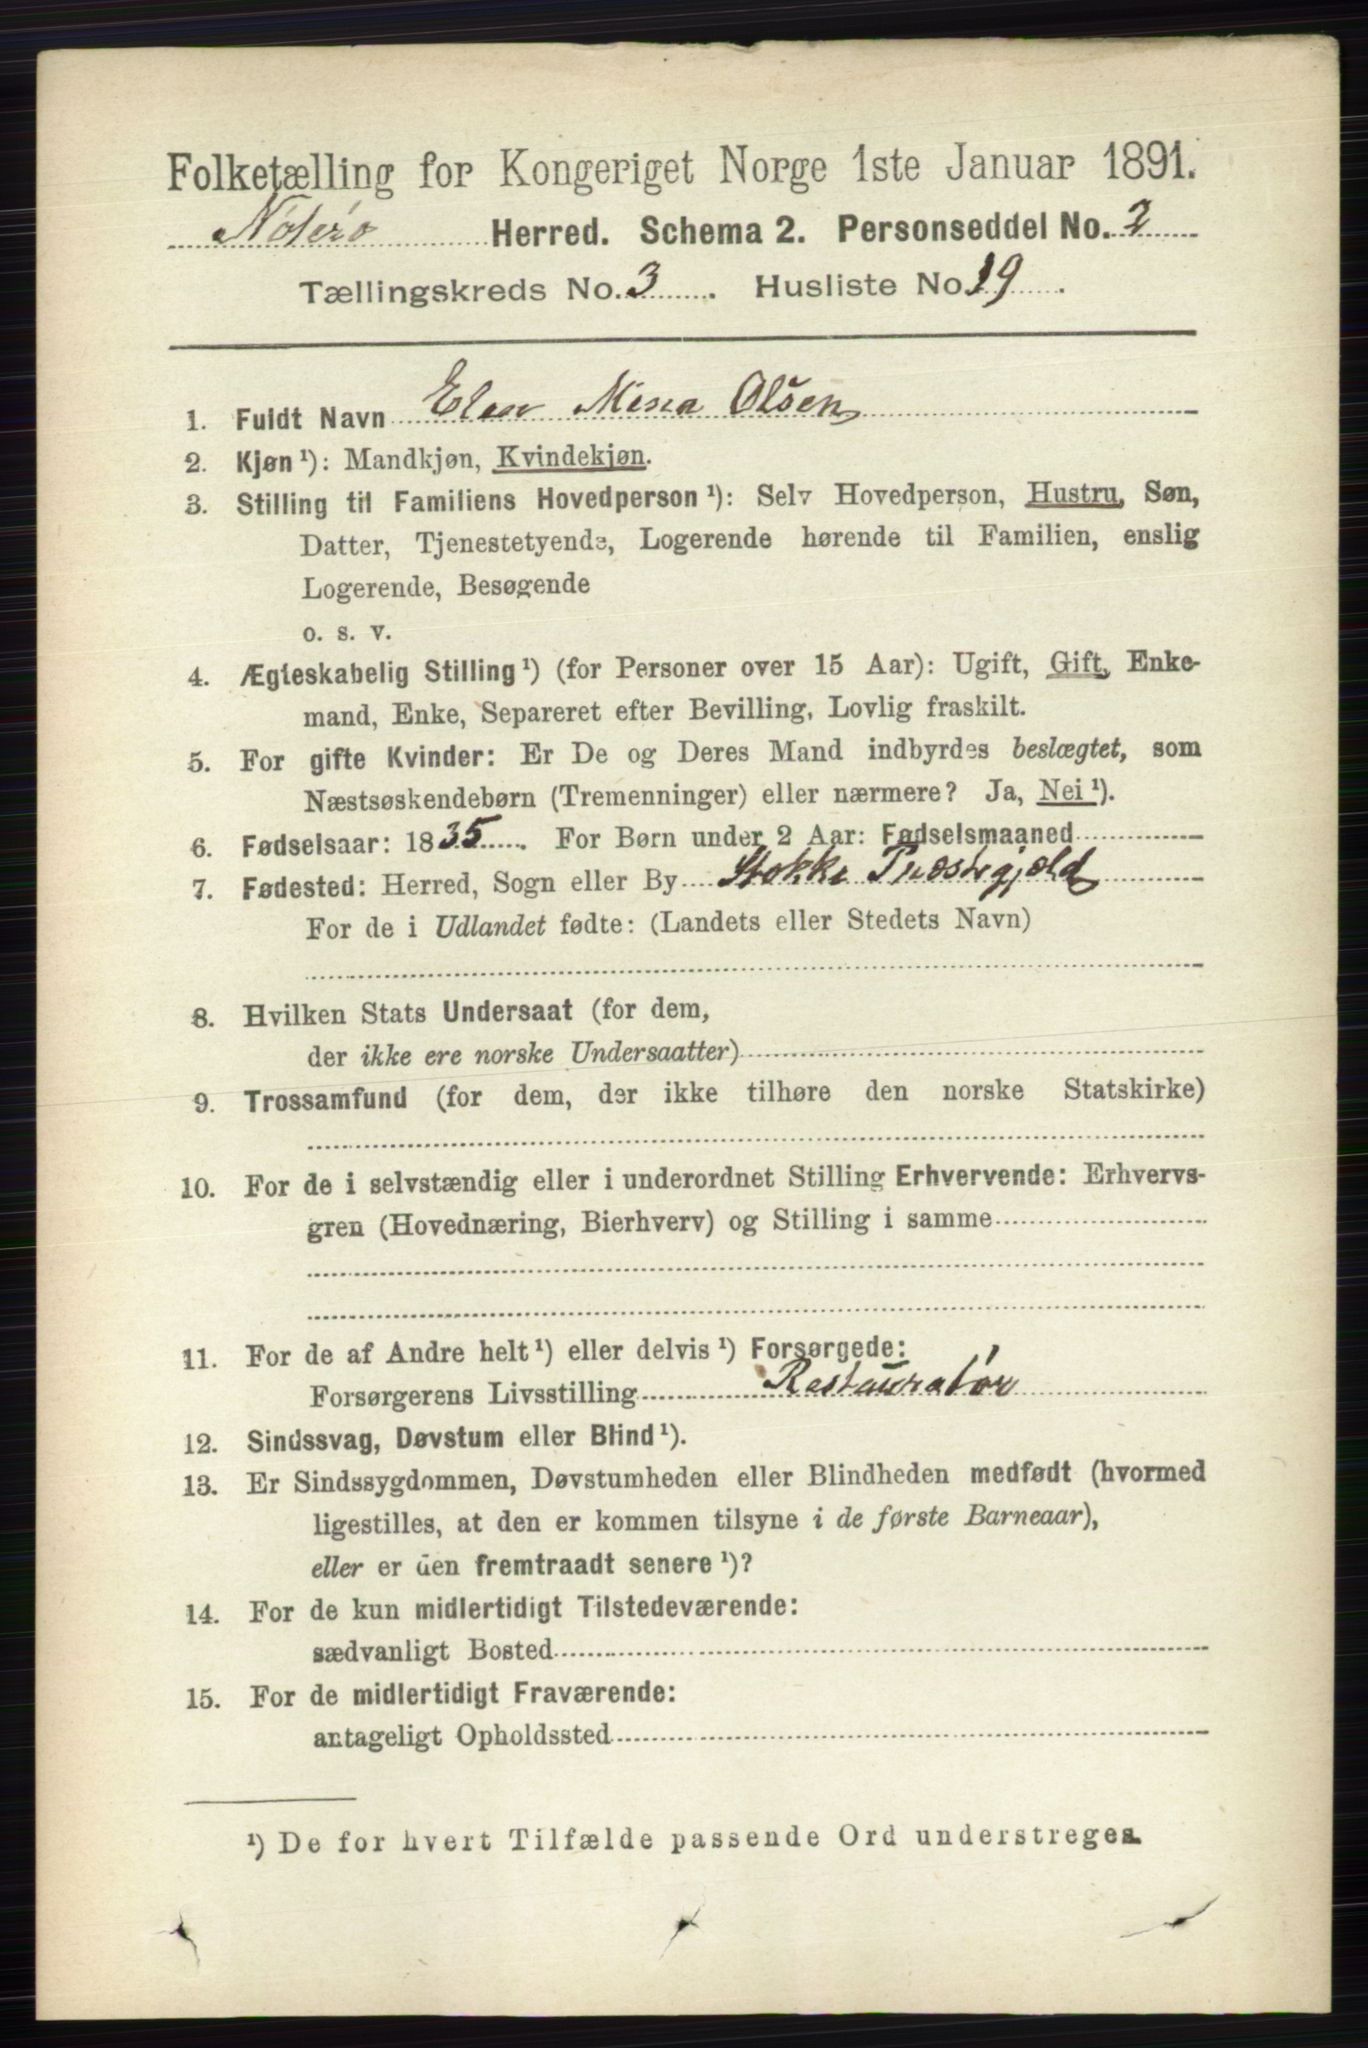 Folketælling for Kongeriget Norge 1ste Januar 1891.
Nøterø Herred. Schema 2. Personseddel No. 2
Tællingskreds No. 3. Husliste No. 19.
1. Fuldt Navn Elen Mina Olsen
2. Kjøn ¹): Mandkjøn, Kvindekjøn.
3. Stilling til Familiens Hovedperson ¹): Selv Hovedperson, Hustru, Søn,
Datter, Tjenestetyende, Logerende hørende til Familien, enslig
Logerende, Besøgende
o. s. v.
4. Ægteskabelig Stilling ¹) (for Personer over 15 Aar): Ugift, Gift, Enke-
mand, Enke, Separeret efter Bevilling, Lovlig fraskilt.
5. For gifte Kvinder: Er De og Deres Mand indbyrdes beslægtet, som
Næstsøskendebørn (Tremenninger) eller nærmere? Ja, Nei ¹).
6. Fødselsaar: 1835. For Børn under 2 Aar: Fødselsmaaned
7. Fødested: Herred, Sogn eller By Stokke Præstegjeld
For de i Udlandet fødte: (Landets eller Stedets Navn)
8. Hvilken Stats Undersaat (for dem,
der ikke ere norske Undersaatter)
9. Trossamfund (for dem, der ikke tilhøre den norske Statskirke)
10. For de i selvstændig eller i underordnet Stilling Erhvervende: Erhvervs-
gren (Hovednæring, Bierhverv) og Stilling i samme
11. For de af Andre helt ¹) eller delvis ¹) Forsørgede:
Forsørgerens Livsstilling Restauratør
12. Sindssvag, Døvstum eller Blind ¹).
13. Er Sindssygdommen, Døvstumheden eller Blindheden medfødt (hvormed
ligestilles, at den er kommen tilsyne i de første Barneaar),
eller er den fremtraadt senere ¹)?
14. For de kun midlertidigt Tilstedeværende:
sædvanligt Bosted
15. For de midlertidigt Fraværende:
antageligt Opholdssted
¹) De for hvert Tilfælde passende Ord understreges.